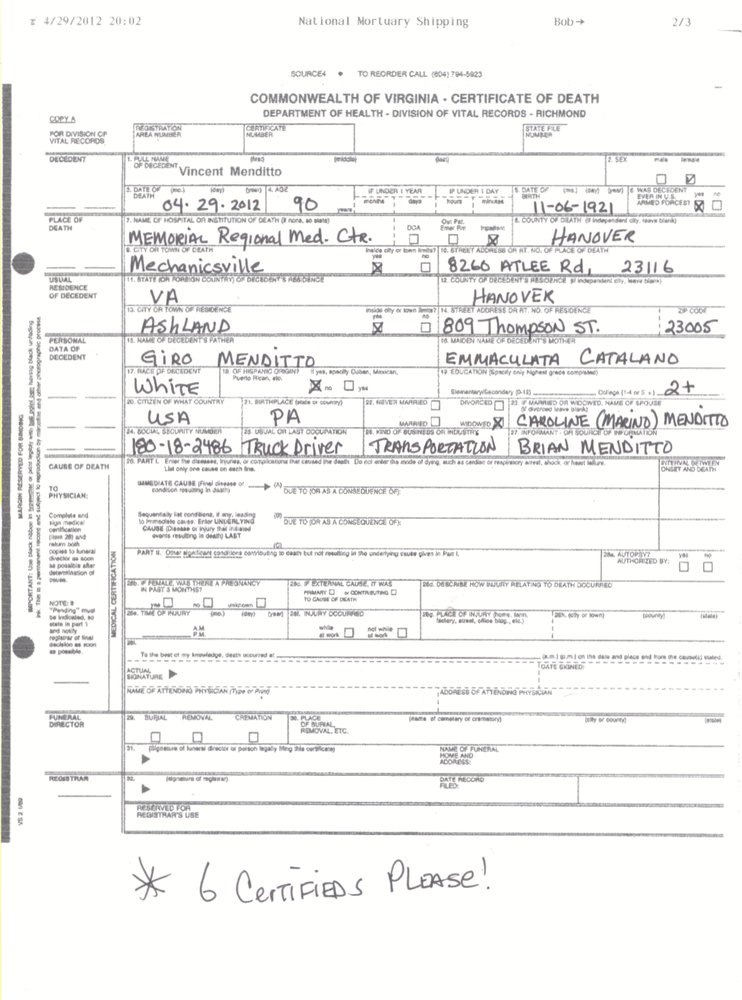 4/29/2012 20:02 National Mortuary Shipping Bob→ 2/3
SOURCE4 • TO REORDER CALL (804) 794-5923
COMMONWEALTH OF VIRGINIA - CERTIFICATE OF DEATH
DEPARTMENT OF HEALTH - DIVISION OF VITAL RECORDS - RICHMOND
COPY A
FOR DIVISION OF VITAL RECORDS
REGISTRATION AREA NUMBER
CERTIFICATE NUMBER
STATE FILE NUMBER
DECEDENT
1. FULL NAME OF DECEDENT (first) (middle) (last)
Vincent Menditto
2. SEX male female
3. DATE OF DEATH (mo.) (day) (year)
04.29.2012
4. AGE
90 years
IF UNDER 1 YEAR months days
IF UNDER 1 DAY hours minutes
5. DATE OF BIRTH (mo.) (day) (year)
11-06-1921
6. WAS DECEDENT EVER IN U.S. ARMED FORCES? yes no
PLACE OF DEATH
7. NAME OF HOSPITAL OR INSTITUTION OF DEATH (if none, so state)
MEMORIAL Regional Med. Ctr.
DOA
Out Pat. Emer Rm
Inpatient
8. COUNTY OF DEATH (if independent city, leave blank)
HANOVER
9. CITY OR TOWN OF DEATH
Mechanicsville
inside city or town limits? yes no
10. STREET ADDRESS OR RT. NO. OF PLACE OF DEATH
8260 ATLEE Rd, 23116
USUAL RESIDENCE OF DECEDENT
11. STATE (OR FOREIGN COUNTRY) OF DECEDENT'S RESIDENCE
VA
12. COUNTY OF DECEDENT'S RESIDENCE (if independent city, leave blank)
HANOVER
13. CITY OR TOWN OF RESIDENCE
ASHLAND
inside city or town limits? yes no
14. STREET ADDRESS OR RT. NO. OF RESIDENCE
809 Thompson ST.
ZIP CODE
23005
PERSONAL DATA OF DECEDENT
15. NAME OF DECEDENT'S FATHER
GIRO MENDITTO
16. MAIDEN NAME OF DECEDENT'S MOTHER
EMMACULATA CATALANO
17. RACE OF DECEDENT
White
18. OF HISPANIC ORIGIN? If yes, specify Cuban, Mexican, Puerto Rican, etc.
no yes
19. EDUCATION (Specify only highest grade completed)
Elementary/Secondary (0-12) College (1-4 or 5+) 2+
20. CITIZEN OF WHAT COUNTRY
USA
21. BIRTHPLACE (state or country)
PA
22. NEVER MARRIED DIVORCED
MARRIED WIDOWED
23. IF MARRIED OR WIDOWED, NAME OF SPOUSE (if divorced leave blank)
CAROLINE (MARINO) MENDITTO
24. SOCIAL SECURITY NUMBER
180-18-2486
25. USUAL OR LAST OCCUPATION
Truck Driver
26. KIND OF BUSINESS OR INDUSTRY
TRANSPORTATION
27. INFORMANT - OR SOURCE OF INFORMATION
BRIAN MENDITTO
CAUSE OF DEATH
TO PHYSICIAN:
Complete and sign medical certification (item 28) and return both copies to funeral director as soon as possible after determination of cause.
NOTE: If "Pending" must be indicated, so state in part I and notify registrar of final decision as soon as possible.
MARGIN RESERVED FOR BINDING
MEDICAL CERTIFICATION
28. PART I. Enter the diseases, injuries, or complications that caused the death. Do not enter the mode of dying, such as cardiac or respiratory arrest, shock, or heart failure.
List only one cause on each line.
INTERVAL BETWEEN ONSET AND DEATH
IMMEDIATE CAUSE (Final disease or condition resulting in death) (A)
DUE TO (OR AS A CONSEQUENCE OF):
Sequentially list conditions, if any, leading to immediate cause. Enter UNDERLYING CAUSE (Disease or injury that initiated events resulting in death) LAST
(B)
DUE TO (OR AS A CONSEQUENCE OF):
(C)
PART II. Other significant conditions contributing to death but not resulting in the underlying cause given in Part I.
28a. AUTOPSY? AUTHORIZED BY: YES NO
28b. IF FEMALE, WAS THERE A PREGNANCY IN PAST 3 MONTHS?
yes no unknown
28c. IF EXTERNAL CAUSE, IT WAS
PRIMARY or CONTRIBUTING
TO CAUSE OF DEATH
28d. DESCRIBE HOW INJURY RELATING TO DEATH OCCURRED
28e. TIME OF INJURY (mo.) (day) (year)
A.M.
P.M.
28f. INJURY OCCURRED
while at work not while at work
28g. PLACE OF INJURY (home, farm, factory, street, office bldg., etc.)
28h. (city or town) (county) (state)
28i.
To the best of my knowledge, death occurred at (a.m.) (p.m.) on the date and place and from the cause(s) stated.
ACTUAL SIGNATURE
DATE SIGNED:
NAME OF ATTENDING PHYSICIAN (Type or Print)
ADDRESS OF ATTENDING PHYSICIAN
FUNERAL DIRECTOR
29. BURIAL REMOVAL CREMATION
30. PLACE OF BURIAL, REMOVAL, ETC.
(name of cemetery or crematory) (city or county) (state)
31. (Signature of funeral director or person legally filing this certificate)
NAME OF FUNERAL HOME AND ADDRESS:
REGISTRAR
32. (signature of registrar)
DATE RECORD FILED:
RESERVED FOR REGISTRAR'S USE
VS 2 1/89
* 6 Certifieds Please!